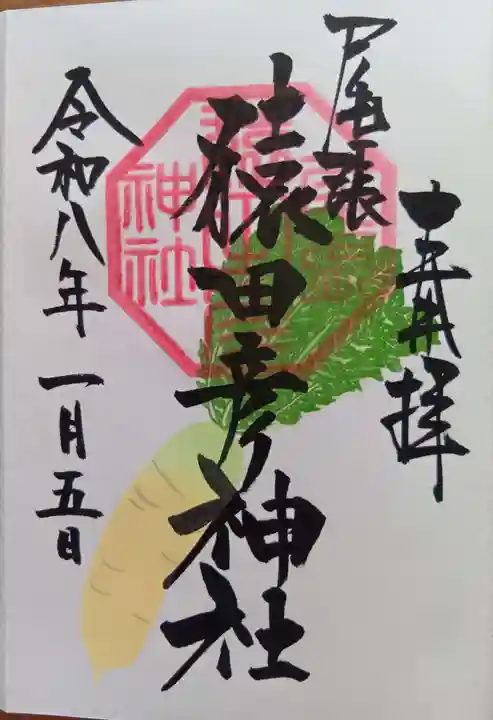 奉拝
尾張
猿田彦神社
令和八年一月五日
神社